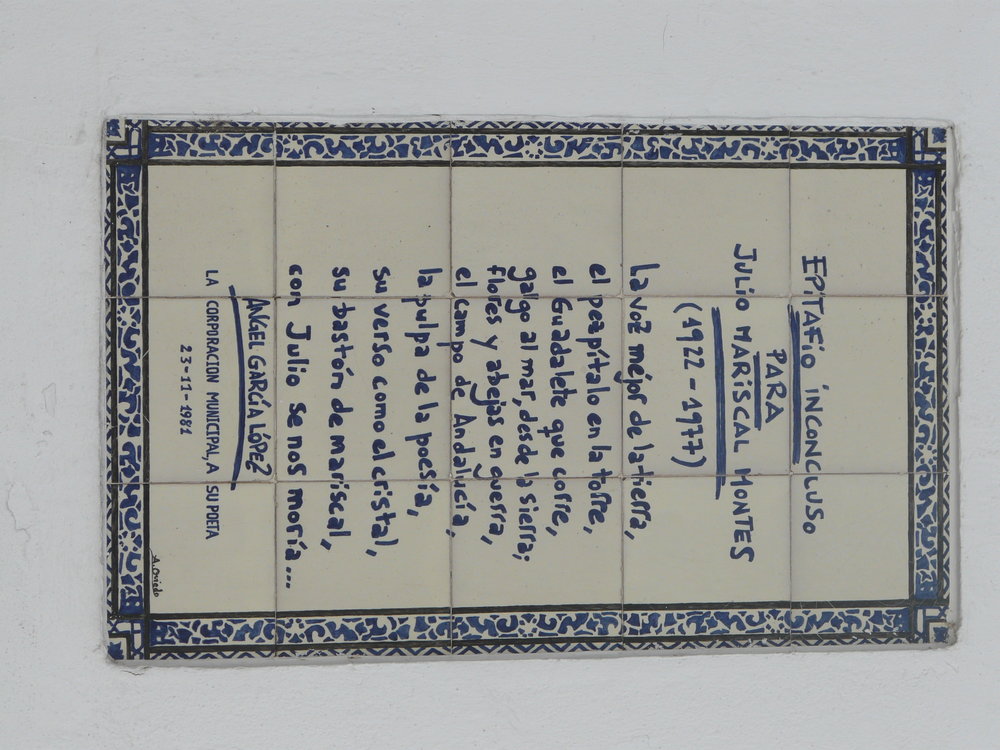 EPITAFIO INCONCLUSO
PARA
JULIO MARISCAL MONTES
(1922-1977)
la voz mejor de la tierra,
el peapítalo en la torre,
el Guadalete que corre,
galgo al mar, desde la sierra;
flores y abejas en guerra,
el campo de Andalucía,
la pulpa de la poesía,
su verso como el cristal,
su bastón de mariscal,
con Julio se nos moría...
ANGEL GARCÍA LÓPEZ
LA CORPORACION MUNICIPAL, A SU POETA
23-11-1981
A. Oviedo